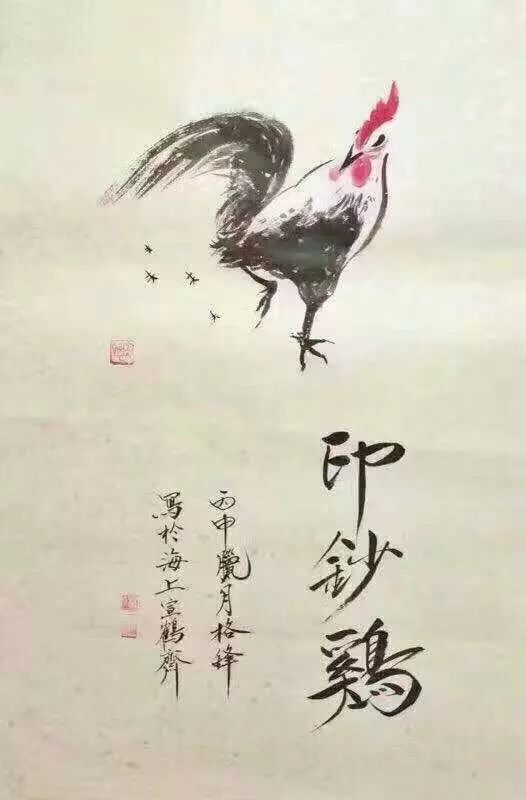 印鈔鷄
丙申臘月格鋒
寫於海上宣鶴齊